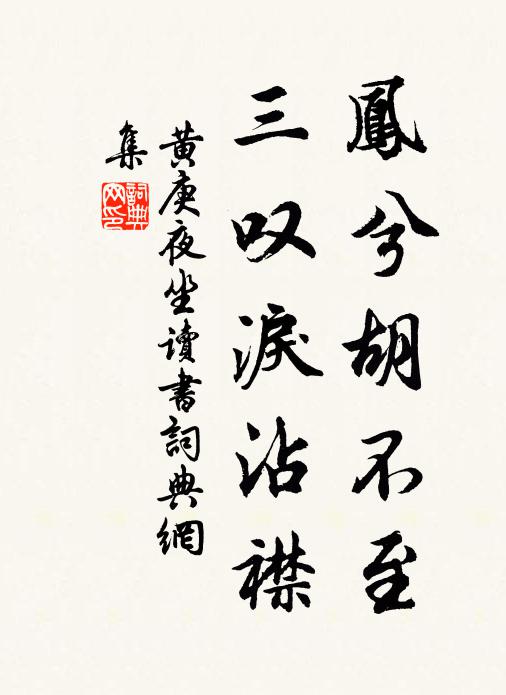 鳳兮胡不至
三叹淚沾襟
黄庚夜坐讀書詞典網
集
詞典
网印